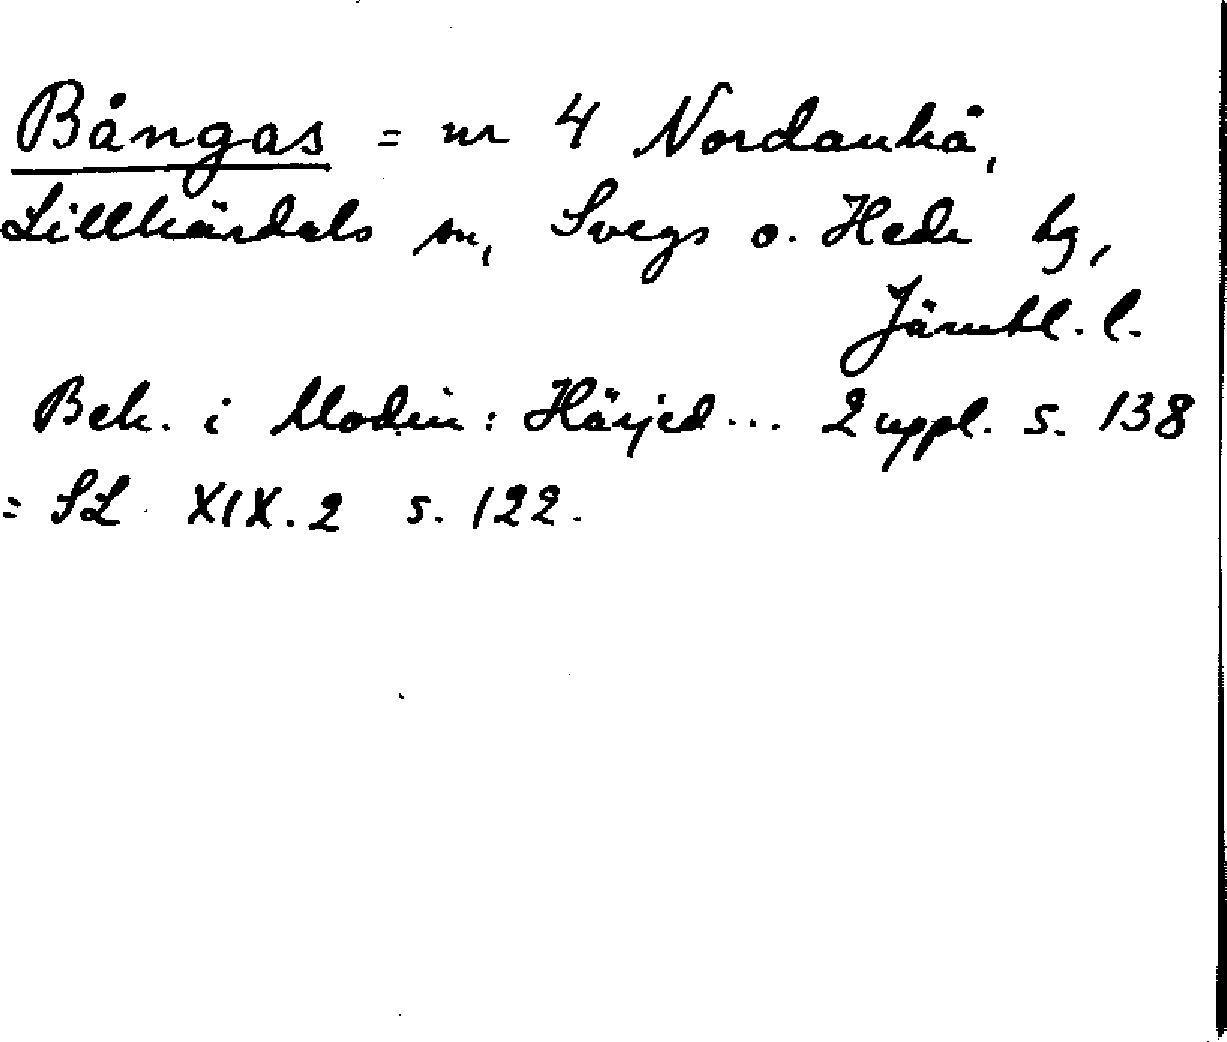 Bångas = nr 4 Nordanhå,
Lillhärdals sn, Svegs o. Hede tg,
Jämtl. l.
Bek. i Modin: Härjed... 2 uppl. s. 138
= SL XIX.2 s. 122.